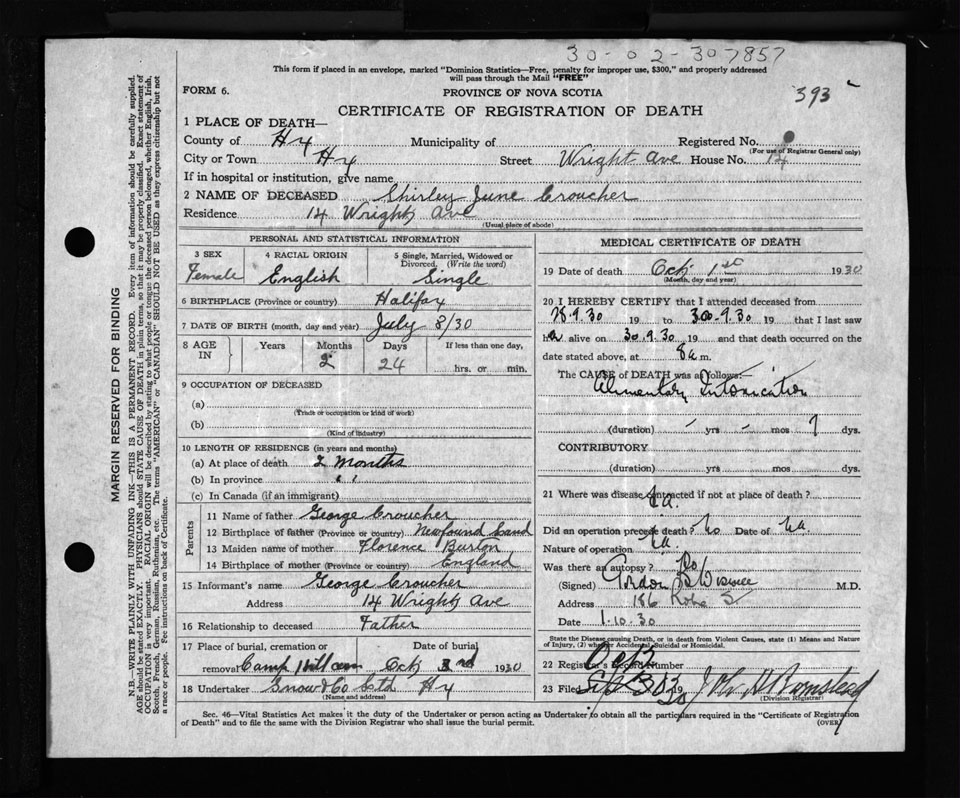 30-02-307857
This form if placed in an envelope, marked "Dominion Statistics—Free, penalty for improper use, $300," and properly addressed
will pass through the Mail "FREE"
FORM 6.
PROVINCE OF NOVA SCOTIA
393
CERTIFICATE OF REGISTRATION OF DEATH
1 PLACE OF DEATH—
County of Hx Municipality of Registered No.
(For use of Registrar General only)
City or Town Hx Street Wright Ave House No. 14
If in hospital or institution, give name
2 NAME OF DECEASED Shirley June Croucher
Residence 14 Wright Ave
(Usual place of abode)
PERSONAL AND STATISTICAL INFORMATION
3 SEX Female
4 RACIAL ORIGIN English
5 Single, Married, Widowed or Divorced. (Write the word) Single
6 BIRTHPLACE (Province or country) Halifax
7 DATE OF BIRTH (month, day and year) July 8/30
8 AGE IN Years Months 2 Days 24 If less than one day, hrs. or min.
9 OCCUPATION OF DECEASED
(a)
(Trade or occupation or kind of work)
(b)
(Kind of industry)
10 LENGTH OF RESIDENCE (in years and months)
(a) At place of death 2 Months
(b) In province " "
(c) In Canada (if an immigrant)
Parents
11 Name of father George Croucher
12 Birthplace of father (Province or country) Newfoundland
13 Maiden name of mother Florence Burton
14 Birthplace of mother (Province or country) England
15 Informant's name George Croucher
Address 14 Wright Ave
16 Relationship to deceased Father
17 Place of burial, cremation or
removal Camp Hill Cem Oct 3rd 1930
18 Undertaker Snow & Co Ltd Hx
(Name and address)
MEDICAL CERTIFICATE OF DEATH
19 Date of death Oct 1st 1930
(Month, day and year)
20 I HEREBY CERTIFY that I attended deceased from
28.9.30 19 to 30.9.30 19 that I last saw
h alive on 30.9.30 19 and that death occurred on the
date stated above, at 8 a m.
The CAUSE of DEATH was as follows:—
Alimentary Intoxication
(duration) - yrs - mos 7 dys.
CONTRIBUTORY
(duration) yrs mos dys.
21 Where was disease contracted if not at place of death?
Did an operation precede death? No Date of
Nature of operation
Was there an autopsy? No
(Signed) Gordon B Wiswell M.D.
Address 186 Robie S
Date 1-10-30
State the Disease causing Death, or in death from Violent Causes, state (1) Means and Nature
of Injury, (2) whether Accidental, Suicidal or Homicidal.
22 Registrar's Record Number
23 Filed Oct 19
(Division Registrar)
Sec. 46—Vital Statistics Act makes it the duty of the Undertaker or person acting as Undertaker to obtain all the particulars required in the "Certificate of Registration
of Death" and to file the same with the Division Registrar who shall issue the burial permit.
(OVER)
MARGIN RESERVED FOR BINDING
N.B.—WRITE PLAINLY WITH UNFADING INK—THIS IS A PERMANENT RECORD. Every item of information should be carefully supplied.
AGE should be stated EXACTLY. PHYSICIANS should STATE CAUSE OF DEATH in plain terms, so that it may be properly classified. Exact statement of
OCCUPATION is very important. RACIAL ORIGIN will be described by stating to what people or tongue the deceased person belonged, whether English, Irish,
Scotch, French, German, Russian, Ruthenian, etc. The terms "AMERICAN" or "CANADIAN" SHOULD NOT BE USED as they express citizenship but not
a race or people. Fee instructions on back of Certificate.